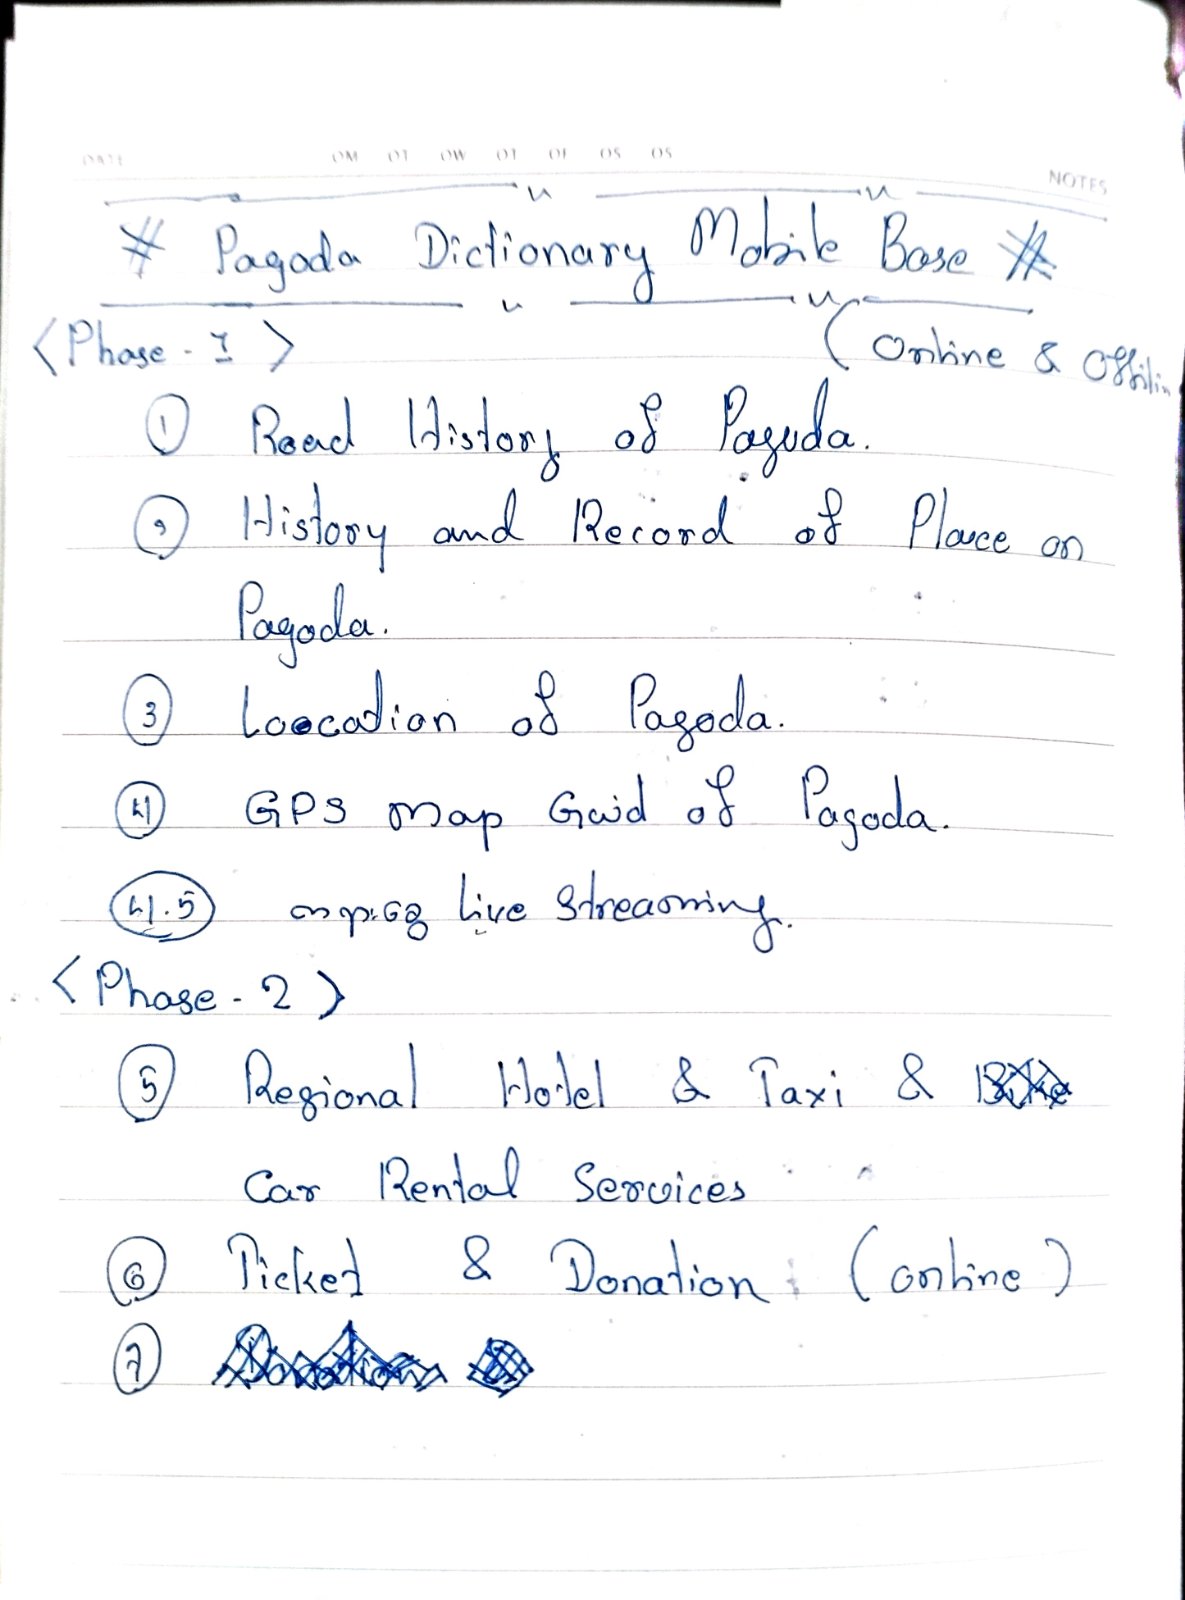 DATE OM OT OW OT OF OS OS
NOTES
# Pagoda Dictionary Mobile Base #
<Phase - 1>
(Online & Offilin
① Read History of Pagoda.
② History and Record of Place on
Pagoda.
③ Loocation of Pagoda.
④ GPS map Guid of Pagoda.
4.5 Live Streaming.
<Phase - 2>
⑤ Regional Hotel & Taxi &
Car Rental Services
⑥ Ticket & Donation (online)
⑦